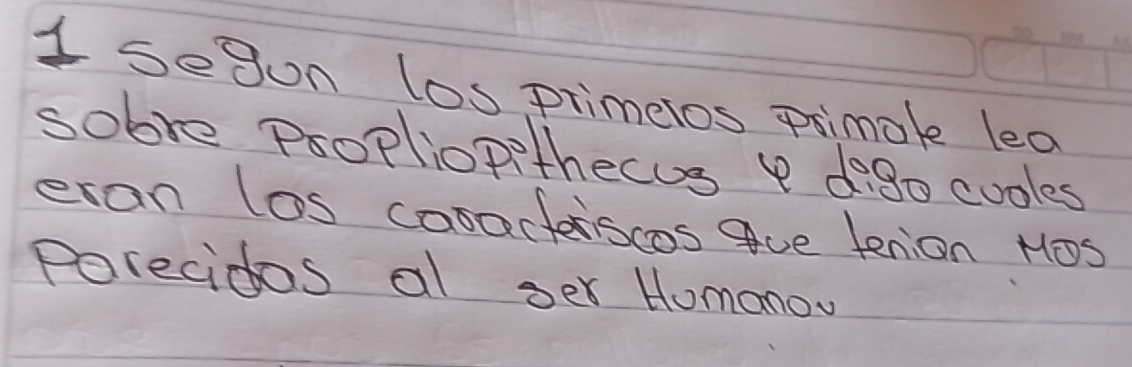 1 segun los primeros primate lea
sobre Propliopithecus y digo cuales
eran las caracteriscas que tenian Mas
Parecidas al ser Humano